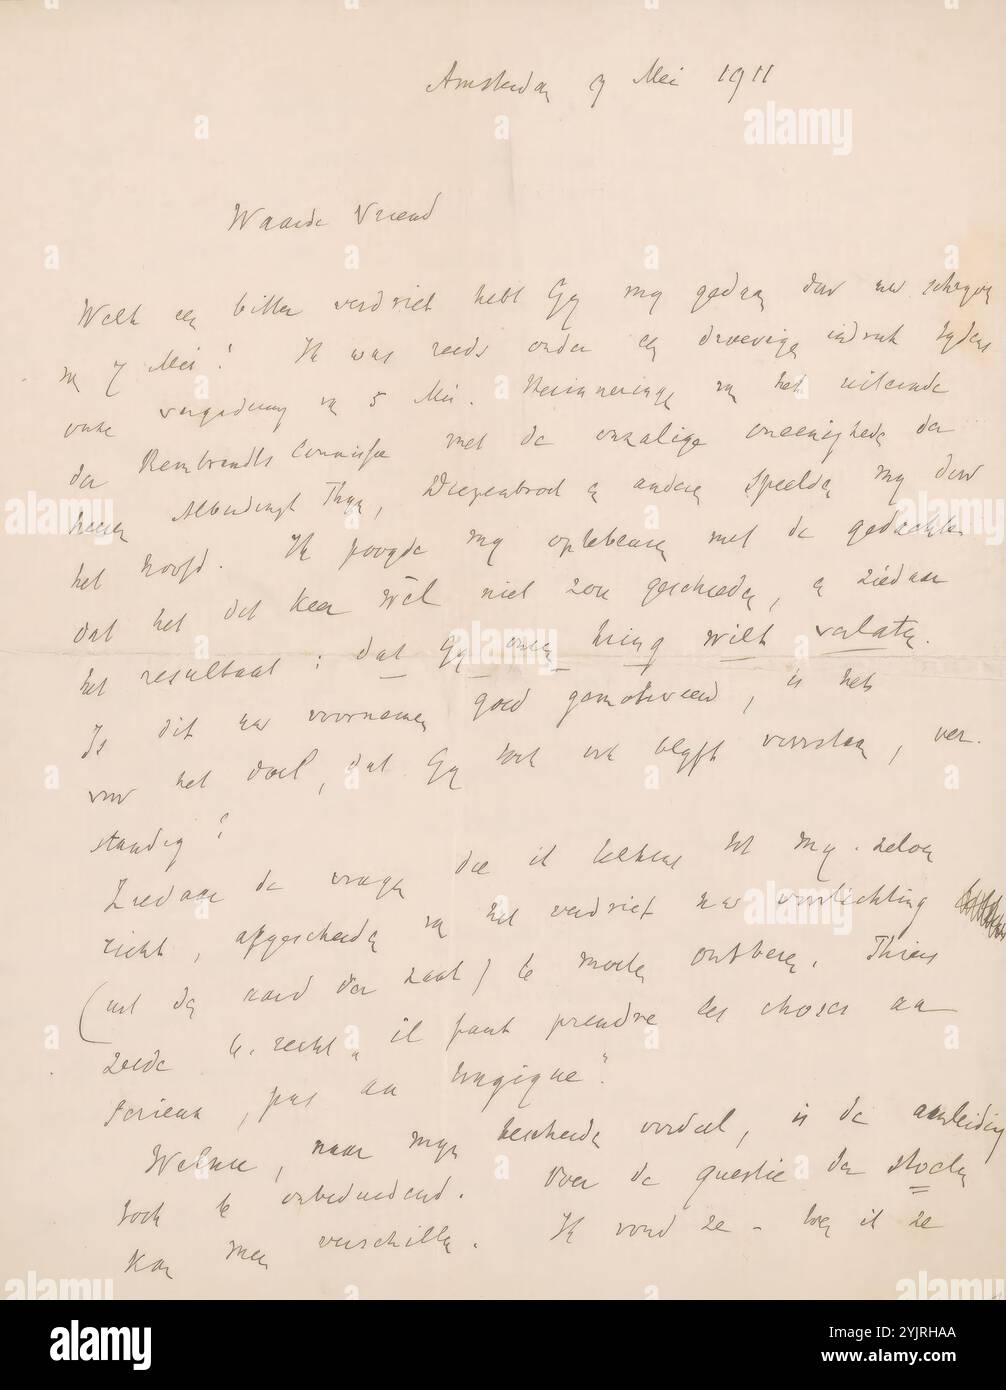 Amsterdam 9 Mei 1911
Waarde Vriend
Welk een bitter verdriet hebt Gij mij gedaan door uw schrijven
van 7 Mei! Ik was reeds onder een droevigen indruk tijdens
onze vergadering van 5 Mei. Herinneringen van het uiteinde
der Rembrandts Commissie met de onzalige oneenigheden der
heeren Alberdingk Thijm, Diepenbrock en anderen speelden mij door
het hoofd. Ik poogde mij opbeuren met de gedachte
dat het dit keer wèl niet zou geschieden, en ziedaar
het resultaat: dat Gij onzen kring wilt verlaten.
Is dit uw voornemen goed gemotiveerd, is het
voor het doel, dat Gij toch ook blijft voorstaan, ver-
standig?
Ziedaar de vragen die ik telkens tot mij-zelven
richt, afgescheiden van het verdriet uw voorlichting
(uit den aard der zaak) te moeten ontberen. Thiers
zeide te-recht „il faut prendre les choses au
serieux, pas au tragique".
Welnu, naar mijn bescheiden oordeel, is de aanleiding
toch te onbeduidend. Over de questie der stoelen
kan men verschillen. Ik vond ze - toen ik ze
alamy
Image ID: 2YJRHAA
www.alamy.com